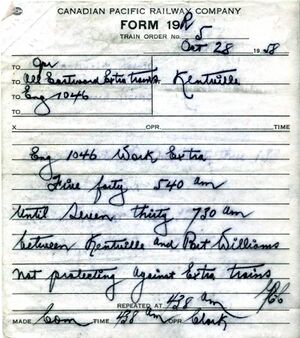 CANADIAN PACIFIC RAILWAY COMPANY
FORM 19R
TRAIN ORDER No. 5
Oct 28 1958
TO Opr
TO All Eastward Extra trains Kentville
TO Eng 1046
TO
X OPR. TIME
Eng 1046 Work Extra
Five forty 540 am
Until Seven thirty 730 am
between Kentville and Port Williams
not protecting against Extra trains
REPEATED AT 438 am
MADE Com TIME 438 am OPR Clark